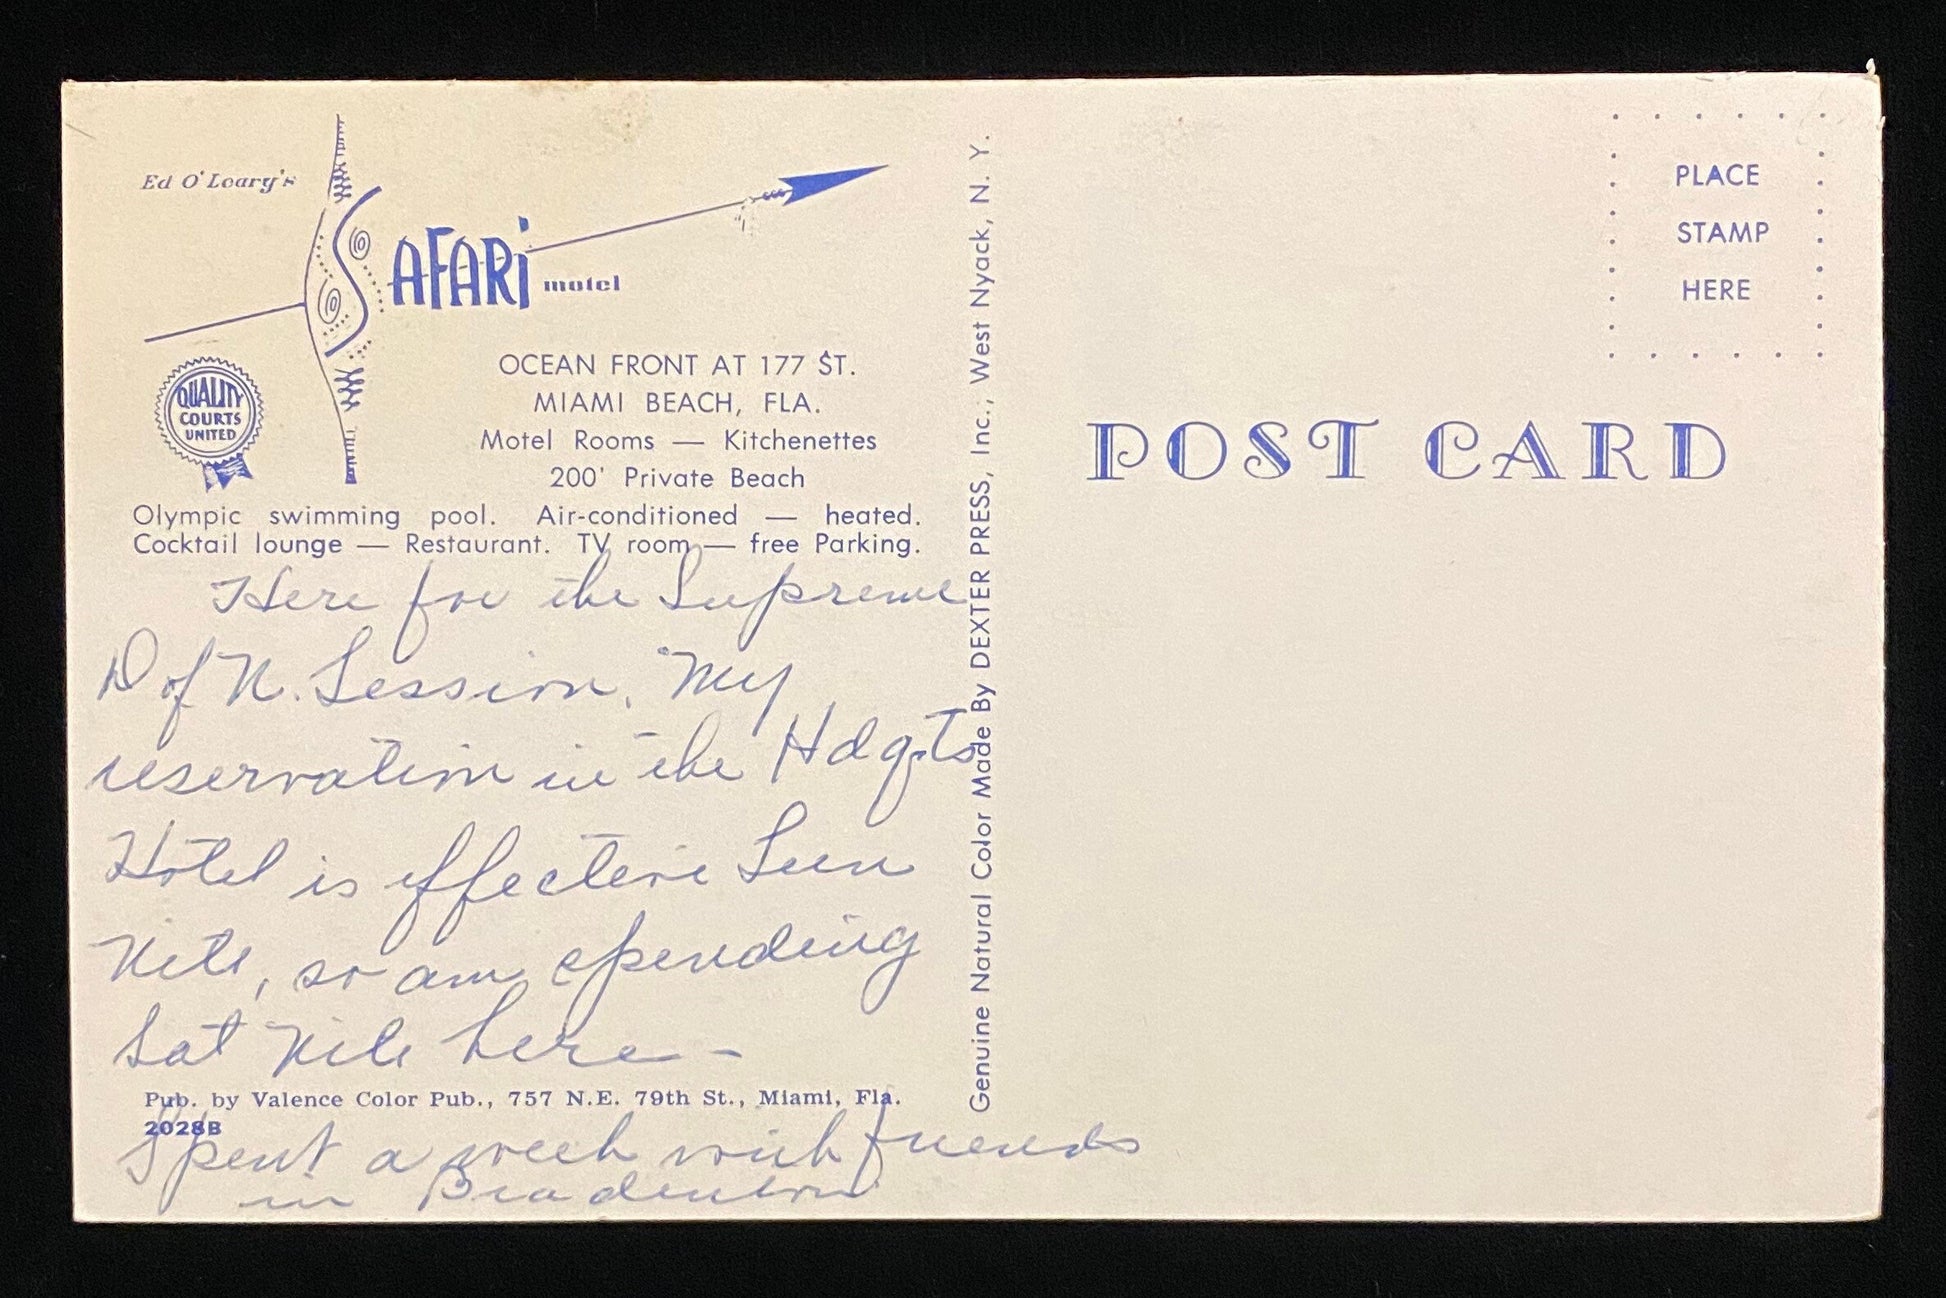 Ed O'Leary's
SAFARi motel
QUALITY
COURTS
UNITED
OCEAN FRONT AT 177 ST.
MIAMI BEACH, FLA.
Motel Rooms — Kitchenettes
200' Private Beach
Olympic swimming pool. Air-conditioned — heated.
Cocktail lounge — Restaurant. TV room — free Parking.
Here for the Supreme
D of N. Session. My
reservation in the Hdqts
Hotel is effective Sun
Nite, so am spending
Sat Nite here –
Pub. by Valence Color Pub., 757 N.E. 79th St., Miami, Fla.
2028B
Spent a week with friends
in Bradenton
Genuine Natural Color Made By DEXTER PRESS, Inc., West Nyack, N. Y.
PLACE
STAMP
HERE
POST CARD